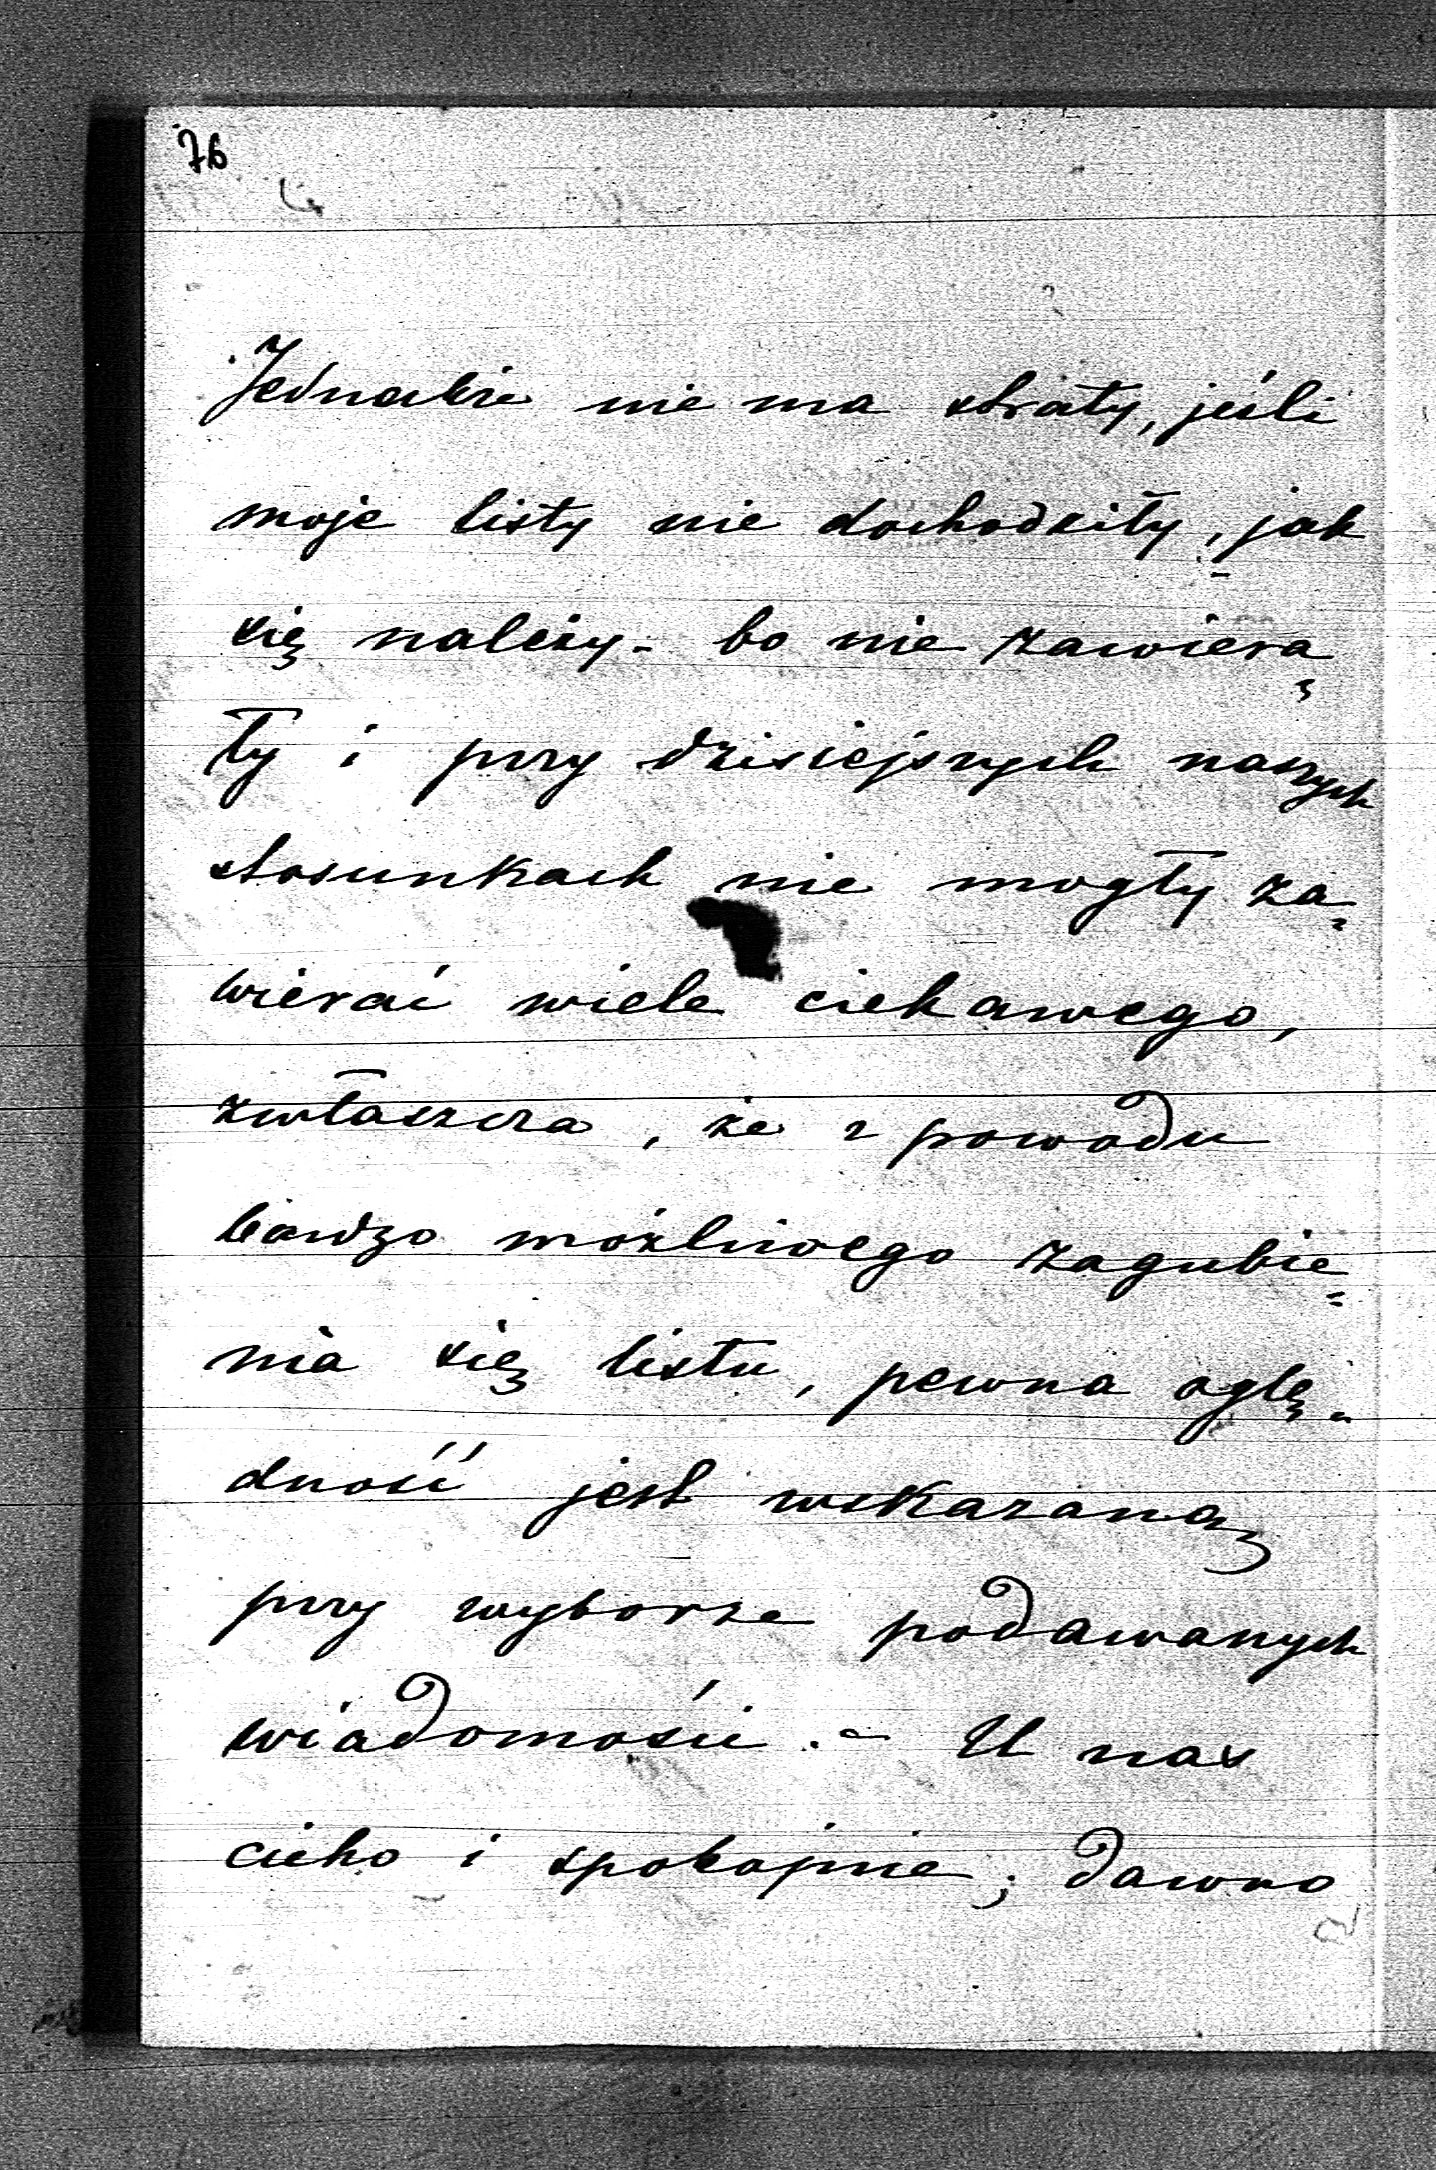 76
Jednakże nie ma straty, jeśli
moje listy nie dochodziły, jak
się należy - bo nie zawiera-
ły i przy dzisiejszych naszych
stosunkach nie mogły za-
wierać wiele ciekawego,
zwłaszcza, że z powodu
bardzo możliwego zagubie-
nia się listu, pewna oglę-
dność jest wskazaną
przy wyborze podawanych
wiadomości. - U nas
cicho i spokojnie; dawno